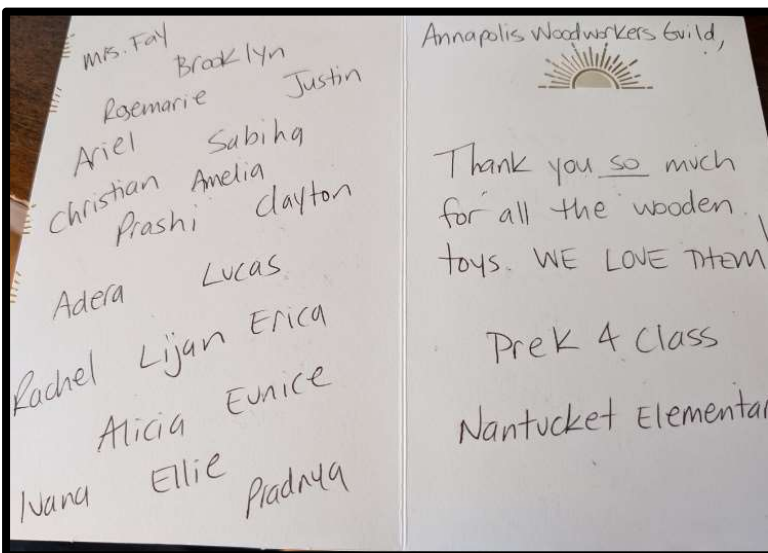 Mrs. Fay
Brooklyn
Rosemarie Justin
Ariel Sabiha
Christian Amelia
Prashi Clayton
Adera Lucas
Rachel Lijan Erica
Alicia Eunice
Ivana Ellie Pradnya
Annapolis Woodworkers Guild,
Thank you so much
for all the wooden
toys. WE LOVE THEM!
PreK 4 Class
Nantucket Elementar